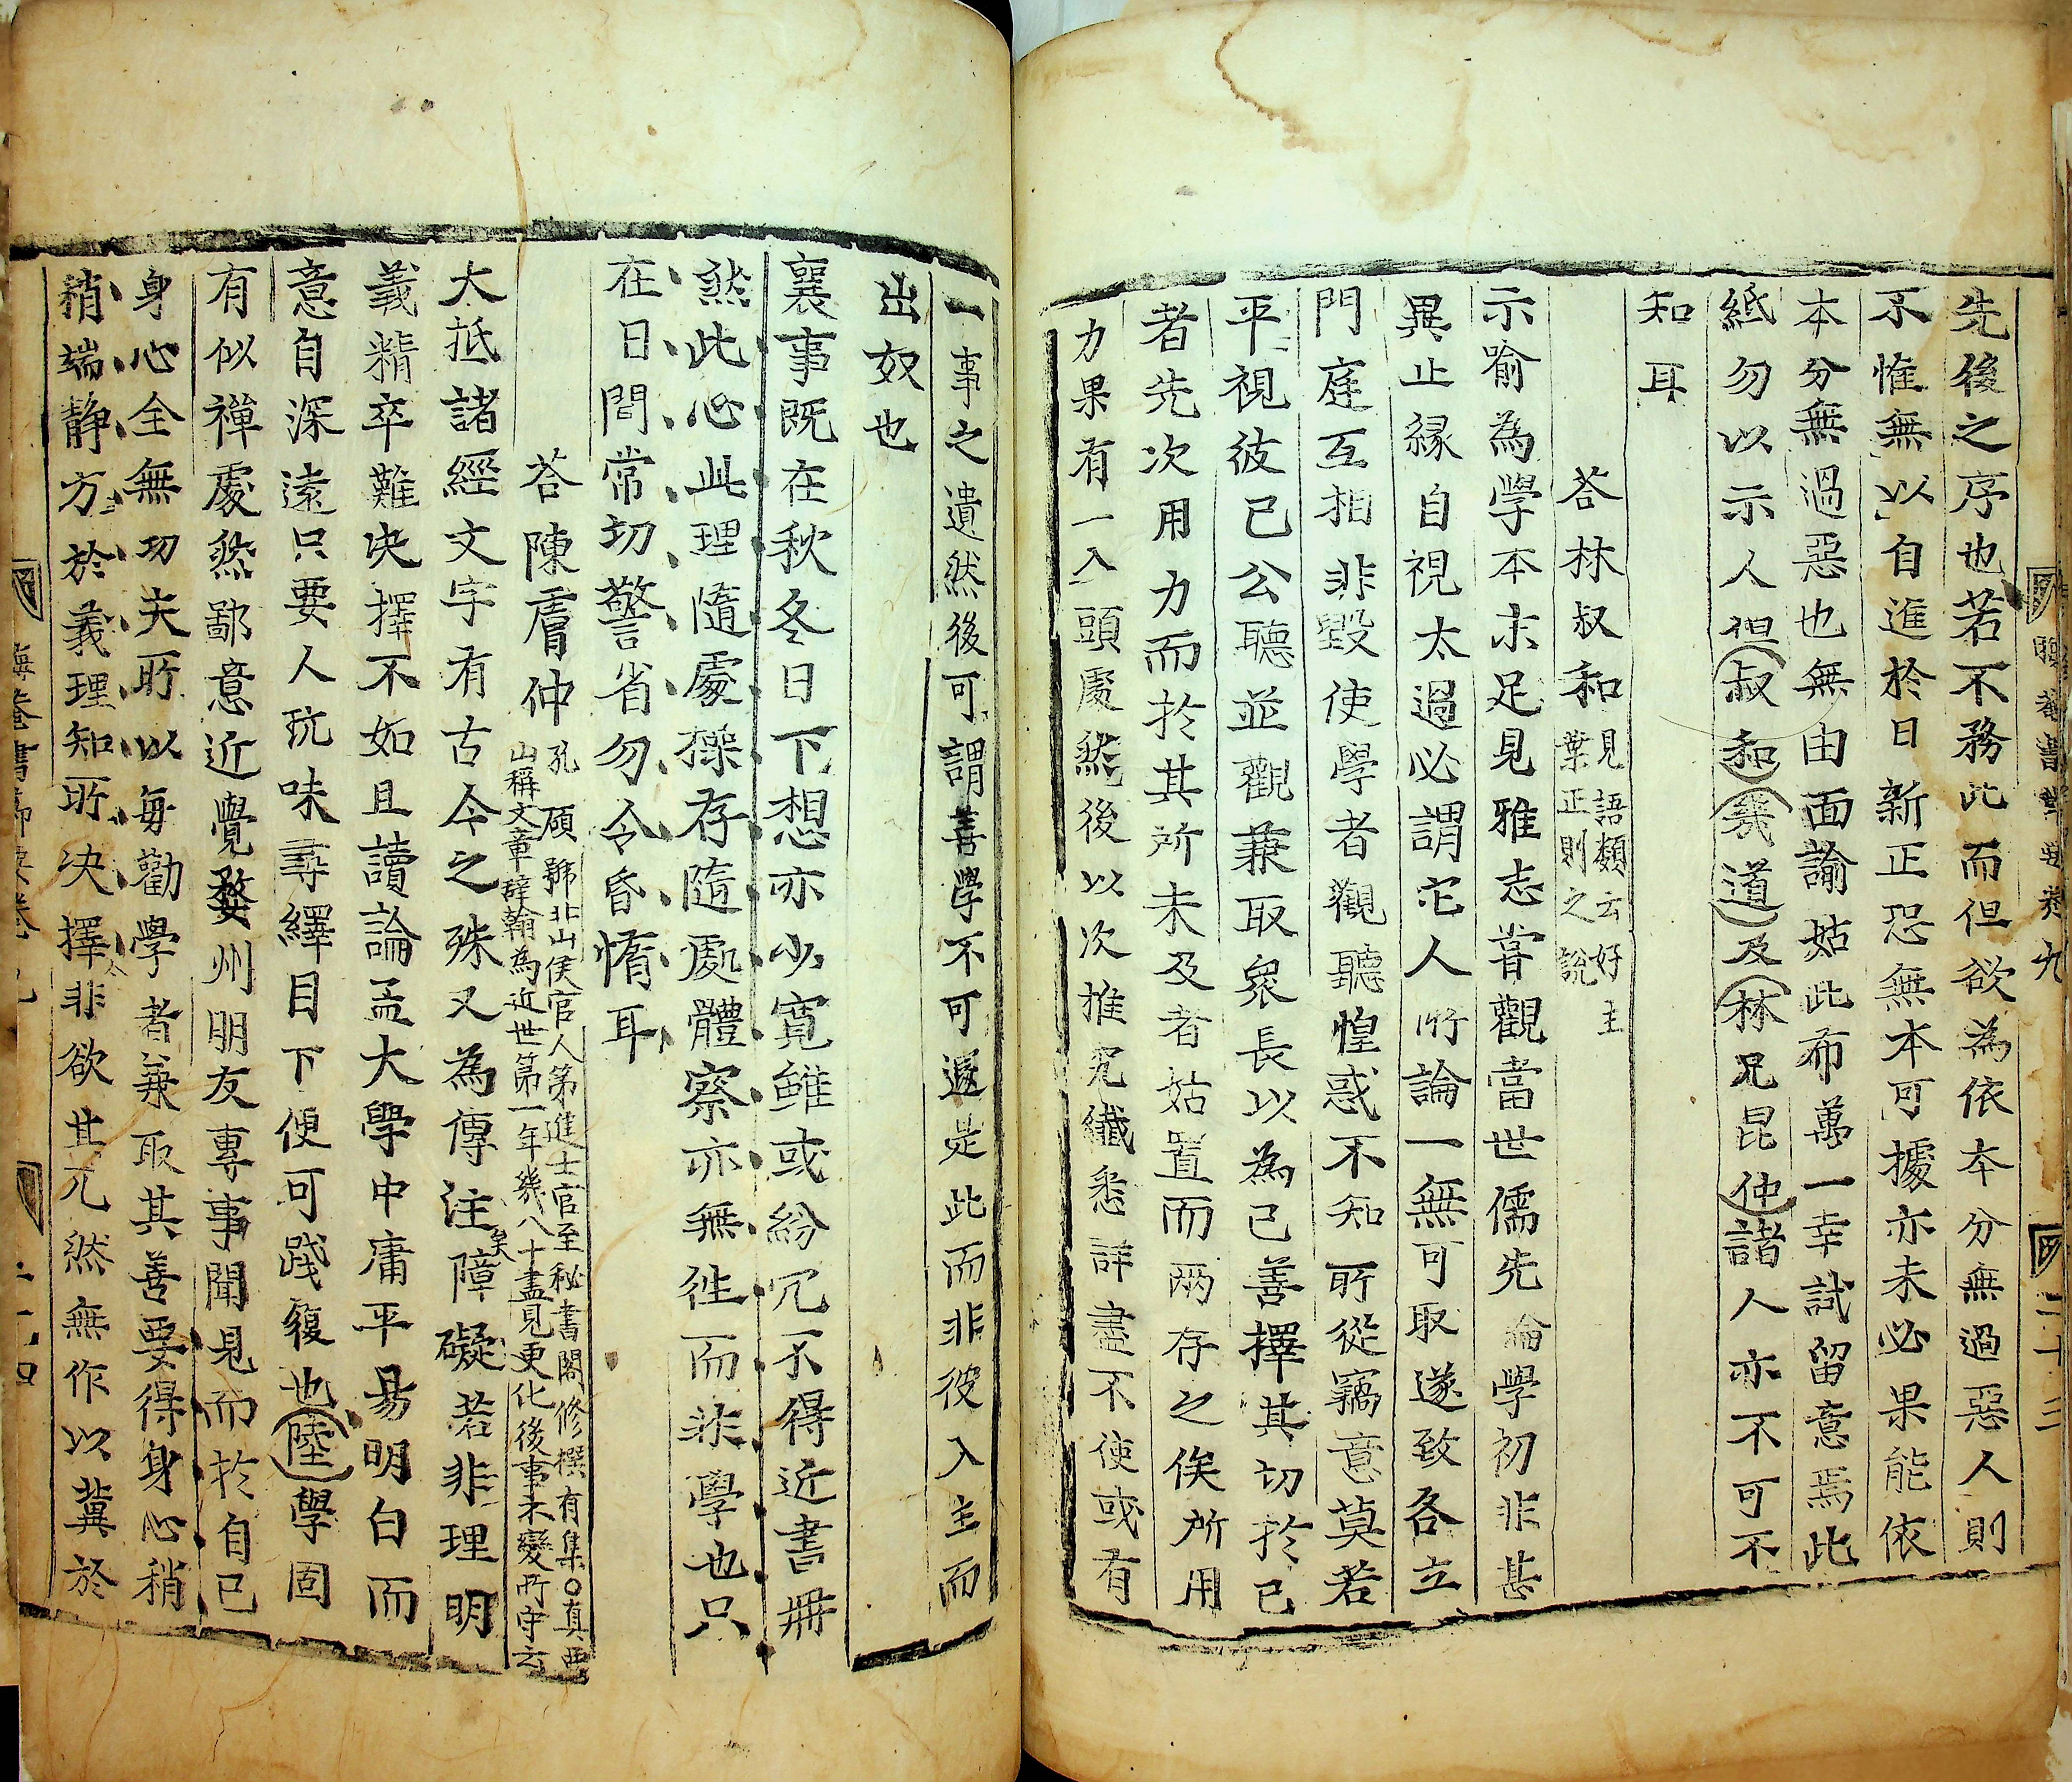 晦菴書節要卷九
二十三
先後之序也若不務此而但欲為依本分無過惡人則
不惟無以自進於日新正恐無本可據亦未必果能依
本分無過惡也無由面諭姑此布萬一幸試留意焉此
紙勿以示人但叔和幾道及林兄昆仲諸人亦不可不
知耳
荅林叔和
見語類云好主
葉正則之說
示喻為學本末足見雅志甞觀當世儒先論學初非甚
異止緣自視太過必謂它人所論一無可取遂致各立
門庭互相非毀使學者觀聽惶惑不知所從竊意莫若
平視彼己公聽並觀兼取衆長以為己善擇其切於己
者先次用力而於其所未及者姑置而兩存之俟所用
力果有一入頭處然後以次推究纖悉詳盡不使或有
一事之遺然後可謂善學不可遽是此而非彼入主而
出奴也
襄事既在秋冬日下想亦少寬雖或紛冗不得近書冊
然此心此理隨處操存隨處體察亦無徃而非學也只
在日間常切警省勿令昏惰耳
荅陳膚仲
孔碩號北山侯官人第進士官至秘書閣修撰有集○真西
山稱文章辭翰為近世第一年幾八十盡見更化後事未變所守云
矣
大抵諸經文字有古今之殊又為傳注障礙若非理明
義精卒難決擇不如且讀論孟大學中庸平易明白而
意自深遠只要人玩味尋繹目下便可踐履也陸學固
有似禪處然鄙意近覺婺州朋友專事聞見而於自己
身心全無功夫所以每勸學者兼取其善要得身心稍
稍端静方於義理知所決擇非欲其兀然無作以冀於
晦菴書節要卷九
二十四